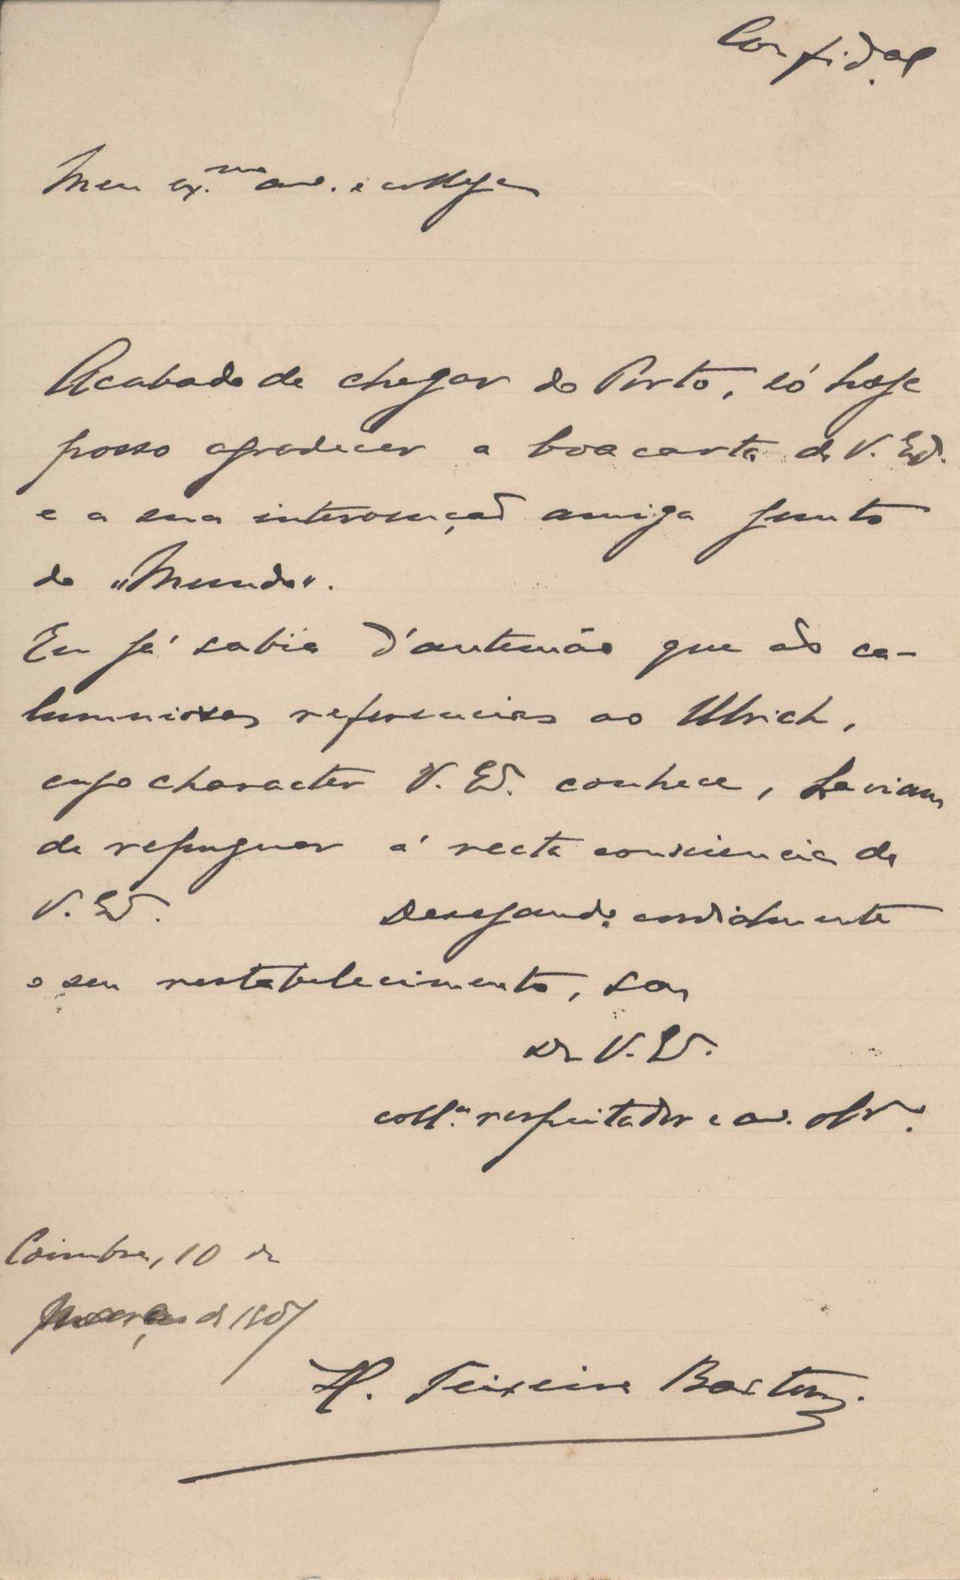 Confid.al
Meu ex.mo am.o e collega
Acabado de chegar do Porto, só hoje
posso agradecer a boa carta de V. Ex.
e a sua intervenção amiga junto
do "Mundo".
Eu já sabia d'antemão que as ca-
lumniosas referencias ao Ulrich,
cujo character V. Ex. conhece, haviam
de repugnar á recta consciencia de
V. Ex. Desejando cordialmente
o seu restabelecimento, sou
De V. Ex.
coll.a respeitador e am. obr.
Coimbra, 10 de
Março de 1907
H. Teixeira Bastos.